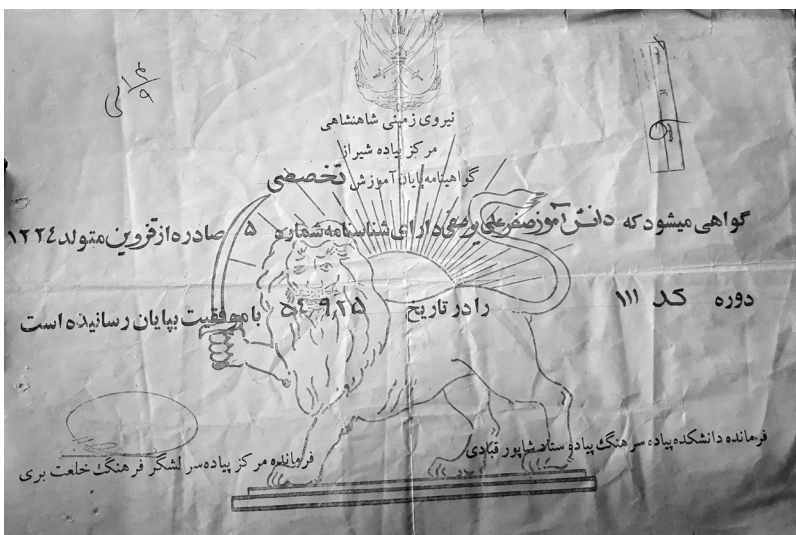 نیروی زمینی شاهنشاهی
مرکز پیاده شیراز
گواهینامه پایان آموزش تخصصی
گواهی میشود که دانش آموز صفرعلی دارای شناسنامه شماره ۵ صادره از قزوین متولد ۱۳۲۴
دوره کد ۱۱۱ را در تاریخ ۵۴،۹،۲۵ با موفقیت بپایان رسانیده است
فرمانده دانشکده پیاده سرهنگ پیاده ستاد شاپور قبادی
فرمانده مرکز پیاده سرلشگر فرهنگ خلعت بری